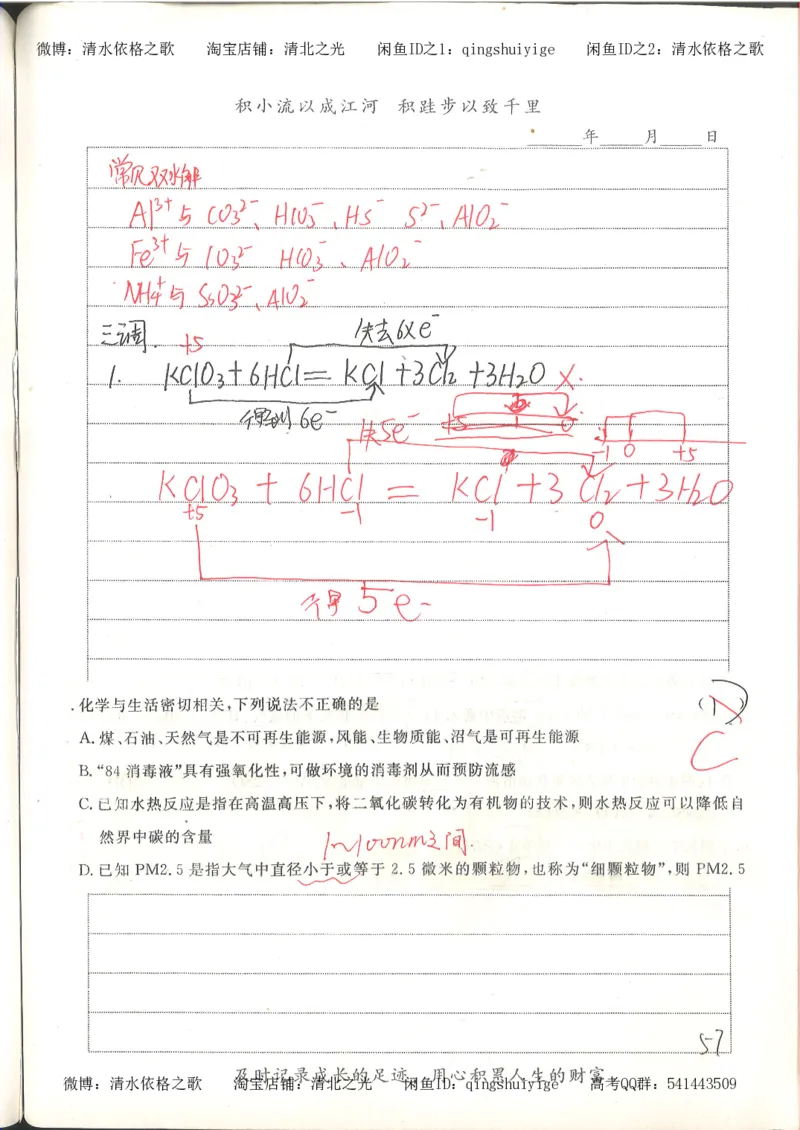 微博：清水依格之歌 淘宝店铺：清北之光 闲鱼ID之1：qingshuiyige 闲鱼ID之2：清水依格之歌
积小流以成江河 积跬步以致千里
年 月 日
常见双水解
Al³⁺与 CO₃²⁻、HCO₃⁻、HS⁻ S²⁻、AlO₂⁻
Fe³⁺与 CO₃²⁻ HCO₃⁻、AlO₂⁻
NH₄⁺与 SiO₃²⁻、AlO₂⁻
三调.
失去6xe⁻
+5
1. KClO₃+6HCl=KCl+3Cl₂+3H₂O ×.
得到6e⁻
失5e⁻
-1 0 +5
KClO₃ + 6HCl = KCl + 3Cl₂ + 3H₂O
+5 -1 -1 0
得 5e⁻
.化学与生活密切相关,下列说法不正确的是 ( D )
C
A.煤、石油、天然气是不可再生能源,风能、生物质能、沼气是可再生能源
B.“84消毒液”具有强氧化性,可做环境的消毒剂从而预防流感
C.已知水热反应是指在高温高压下,将二氧化碳转化为有机物的技术,则水热反应可以降低自
然界中碳的含量
1~100nm之间.
D.已知 PM2.5是指大气中直径小于或等于 2.5 微米的颗粒物,也称为“细颗粒物”,则 PM2.5
57
及时记录成长的足迹 用心积累人生的财富
微博：清水依格之歌 淘宝店铺：清北之光 闲鱼ID：qingshuiyige 高考QQ群：541443509